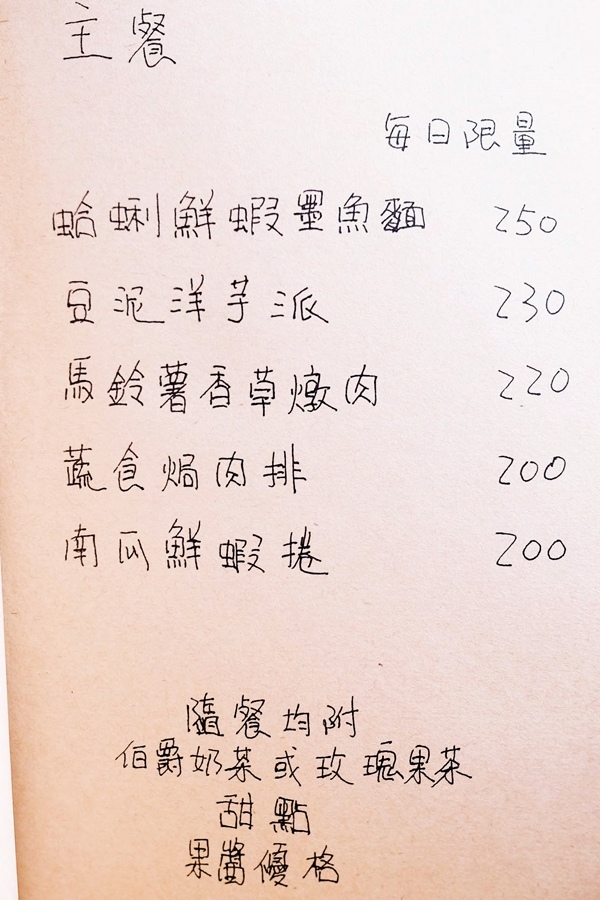 主餐
每日限量
蛤蜊鮮蝦墨魚麵 250
豆泥洋芋派 230
馬鈴薯香草燉肉 220
蔬食焗肉排 200
南瓜鮮蝦捲 200
隨餐均附
伯爵奶茶或玫瑰果茶
甜點
果醬優格